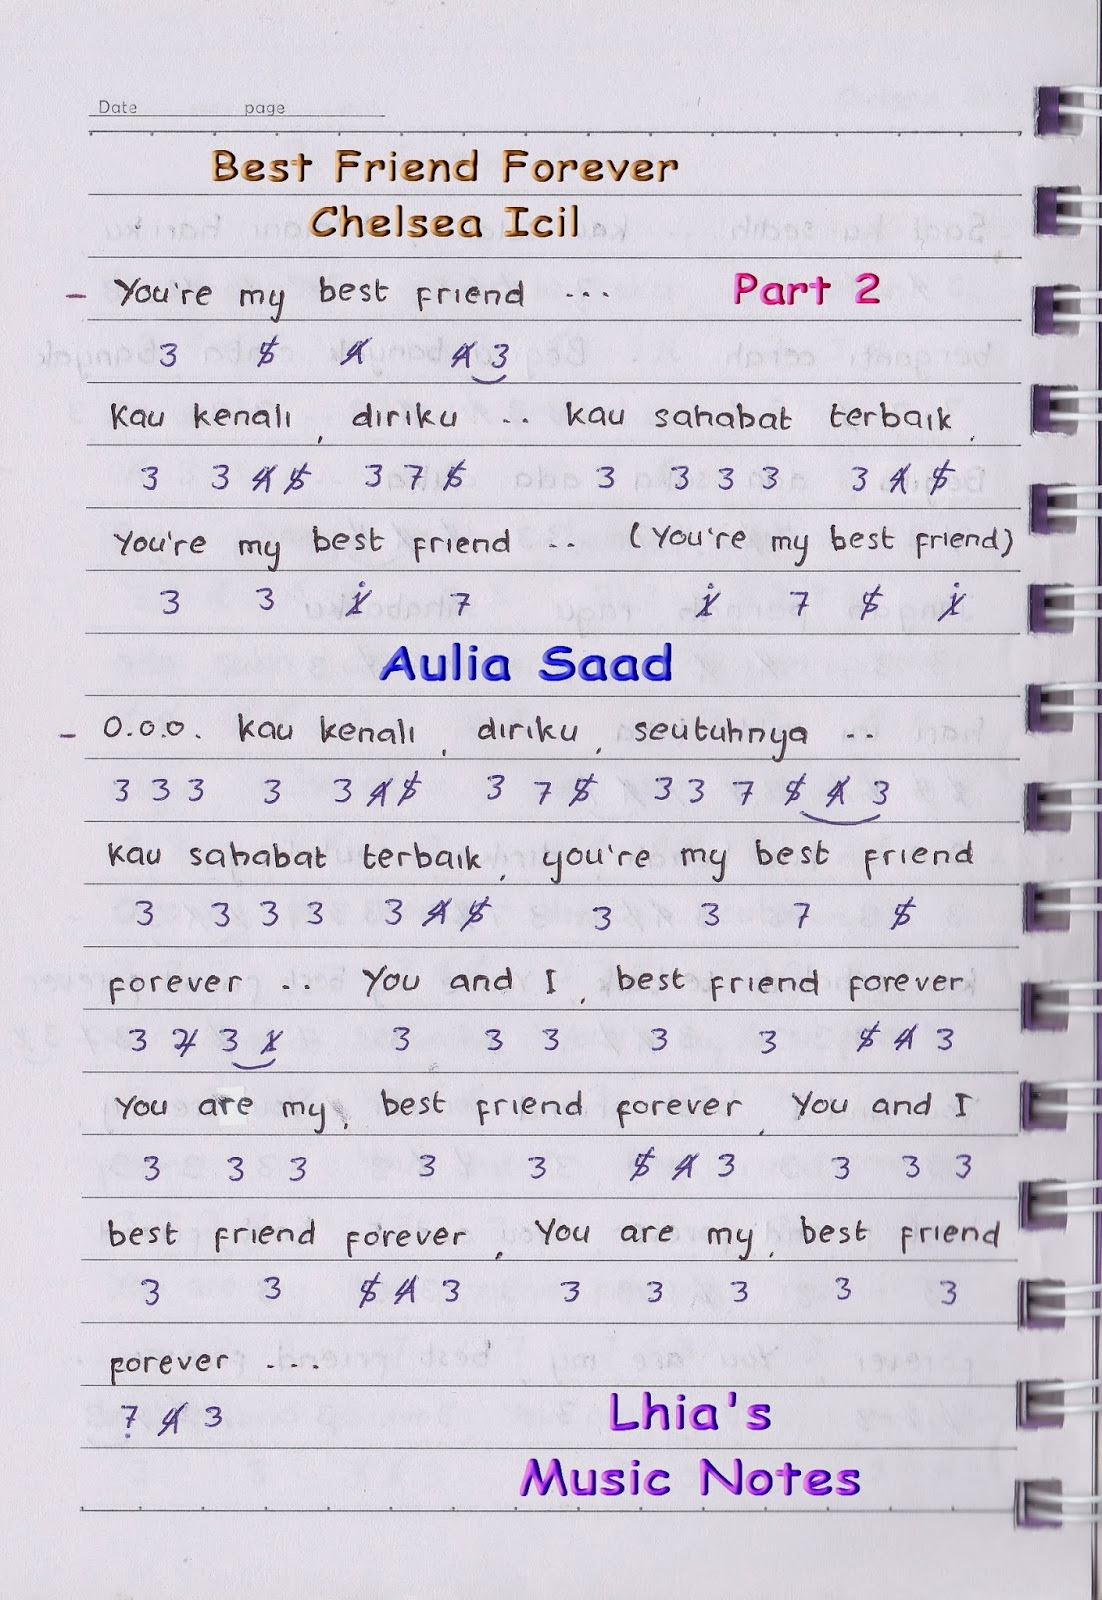 Date page
Best Friend Forever
Chelsea Icil
- You're my best friend ... Part 2
3 5̸ 4̸ 4̸ 3
Kau kenali, diriku .. kau sahabat terbaik,
3 3 4̸ 5̸ 3 7 5̸ 3 3 3 3 3 4̸ 5̸
You're my best friend .. (You're my best friend)
3 3 1̸̇ 7 1̸̇ 7 5̸ 1̸̇
Aulia Saad
- O.o.o. kau kenali, diriku, seutuhnya ..
3 3 3 3 3 4̸ 5̸ 3 7 5̸ 3 3 7 5̸ 4̸ 3
kau sahabat terbaik, you're my best friend
3 3 3 3 3 4̸ 5̸ 3 3 7 5̸
forever .. You and I, best friend forever
3 2̸ 3 1̸ 3 3 3 3 3 5̸ 4̸ 3
You are my, best friend forever, You and I
3 3 3 3 3 5̸ 4̸ 3 3 3 3
best friend forever, You are my, best friend
3 3 5̸ 4̸ 3 3 3 3 3 3
forever ....
7̣ 4̸ 3
Lhia's
Music Notes